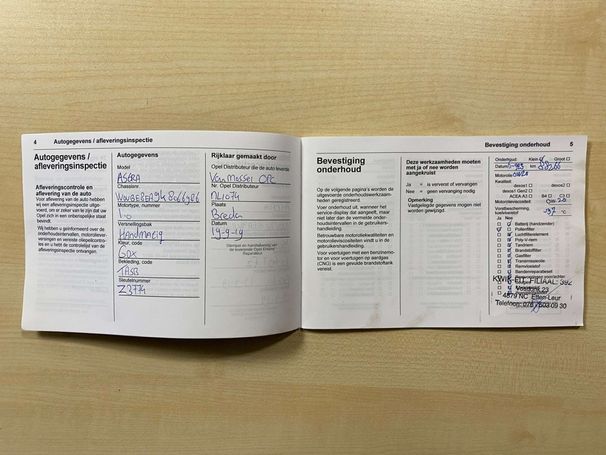 4 Autogegevens / afleveringsinspectie
Autogegevens /
afleveringsinspectie
Afleveringscontrole en
aflevering van de auto
Voor aflevering van de auto hebben
wij een afleveringsinspectie uitge-
voerd, om er zeker van te zijn dat uw
Opel zich in een onberispelijke staat
bevindt.
Wij hebben u geïnformeerd over de
onderhoudsintervallen, motorolever-
versingen en vereiste oliepeilcontro-
les en u hebt de controlelijst van de
afleveringsinspectie ontvangen.
Autogegevens
Model
ASTRA
Chassisnr.
Motortype, nummer
1.0
Versnellingsbak
Handmatig
Kleur, code
Bekleding, code
TASB
Sleutelnummer
Z3734
Rijklaar gemaakt door
Opel Distributeur die de auto leverde
Van Mossel OPC
Nr. Opel Distributeur
NL1074
Plaats
Breda
Datum
19-9-19
Stempel en handtekening van
de leverende Opel Erkend
Reparateur
Bevestiging onderhoud 5
Bevestiging
onderhoud
Op de volgende pagina's worden de
uitgevoerde onderhoudswerkzaam-
heden geregistreerd.
Voer onderhoud uit, wanneer het
service display dat aangeeft, maar
niet later dan de vermelde onder-
houdsintervallen in de gebruikers-
handleiding.
Betrouwbare motoroliekwaliteiten en
motorolieviscositeiten vindt u in de
gebruikershandleiding.
Voor voertuigen met een benzinemo-
tor en voor voertuigen op aardgas
(CNG) is een gevuide brandstoftank
vereist.
Deze werkzaamheden moeten
met ja of nee worden
aangekruist
Ja = is ververst of vervangen
Nee = geen vervanging nodig
Opmerking
Vastgelegde gegevens mogen niet
worden gewijzigd.
Onderhoud: Klein Groot
Datum km
Motorolie
Kwaliteit
dexos1 dexos2
dexos1 Gen2
ACEA A3 B4 C3
Motorolieviscositeit
Vorstbescherming
koelvloeistof -37 °C
Ja Nee
Batterij (handzender)
Pollenfilter
Luchtfilterelement
Poly-V-riem
Tandriem
Brandstoffilter
Gasfilter
Transmissieolie
Remvloeistof
Bandenreparatieset
KWIK-FIT FILIAAL: 392
Vosdonk 23
4879 NC Etten-Leur
Telefoon: 076 - 503 09 30